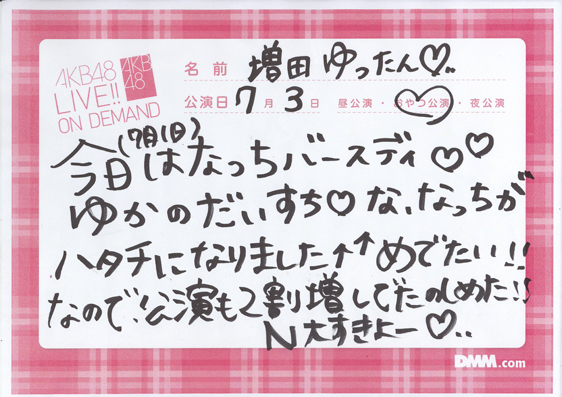 AKB48
LIVE!!
ON DEMAND
AKB
48
名前 増田ゆったん♡
公演日 7月3日 昼公演・おやつ公演・夜公演
(7月1日)
今日はなっちバースディ♡♡
ゆかのだいすち♡な、なっちが
ハタチになりました↑↑めでたい!!
なので、公演も2割り増してたのしめた!!
N大すきよー♡
DMM.com